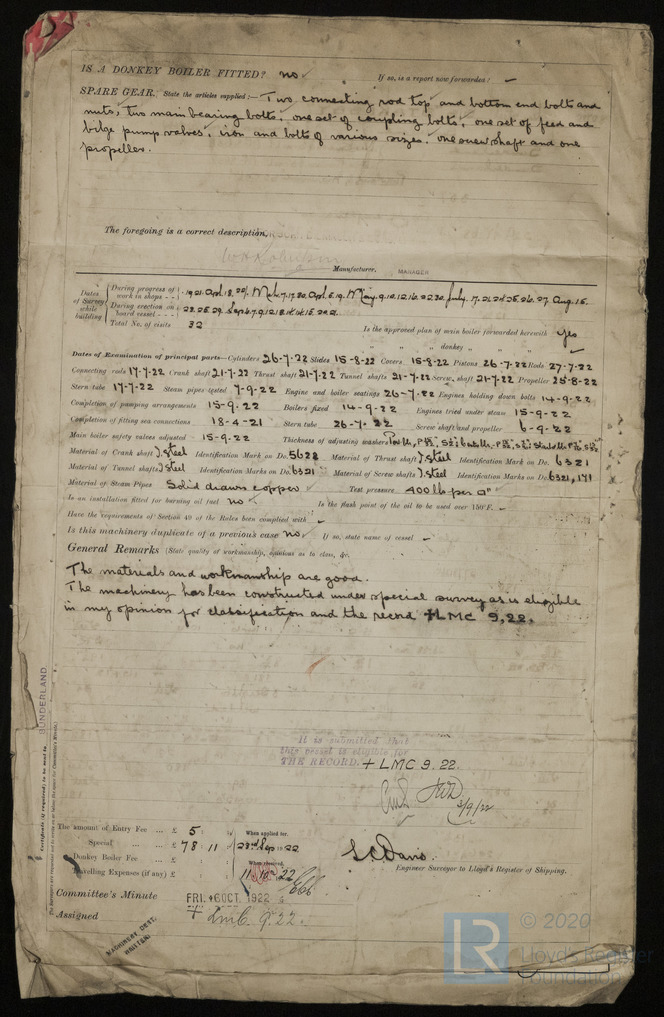 IS A DONKEY BOILER FITTED? no ✓ If so, is a report now forwarded? ✓
SPARE GEAR. State the articles supplied:— Two connecting rod top and bottom end bolts and
nuts, two main bearing bolts, one set of coupling bolts, one set of feed and
bilge pump valves, iron and bolts of various sizes, one screw shaft and one
propeller.
The foregoing is a correct description,
Manufacturer. MANAGER
Dates of Survey while building
During progress of work in shops - - 1921. Apl. 18. 7. 17. 30. Apl. 5. 19. May. 9. 10. 12. 16. 22. 30. July. 7. 21. 26. 27. Aug. 15.
During erection on board vessel - - - 23. 25. 29. Sept. 6. 7. 9. 12. 15.
Total No. of visits 32
Is the approved plan of main boiler forwarded herewith yes
" " " donkey " " "
Dates of Examination of principal parts—Cylinders 26-7-22 Slides 15-8-22 Covers 15-8-22 Pistons 26-7-22 Rods 27-7-22
Connecting rods 17-7-22 Crank shaft 21-7-22 Thrust shaft 21-7-22 Tunnel shafts 21-7-22 Screw shaft 21-7-22 Propeller 25-8-22
Stern tube 17-7-22 Steam pipes tested 7-9-22 Engine and boiler seatings 26-7-22 Engines holding down bolts 14-9-22
Completion of pumping arrangements 15-9-22 Boilers fixed 14-9-22 Engines tried under steam 15-9-22
Completion of fitting sea connections 18-4-21 Stern tube 26-7-22 Screw shaft and propeller 6-9-22
Main boiler safety valves adjusted 15-9-22 Thickness of adjusting washers
Material of Crank shaft I. Steel Identification Mark on Do. 5628 Material of Thrust shaft I. Steel Identification Mark on Do. 6321
Material of Tunnel shafts I. Steel Identification Marks on Do. 6321 Material of Screw shafts I. Steel Identification Marks on Do. 6321, 171
Material of Steam Pipes Solid drawn copper ✓ Test pressure 400 lb per □"
Is an installation fitted for burning oil fuel no ✓ Is the flash point of the oil to be used over 150°F. ✓
Have the requirements of Section 49 of the Rules been complied with ✓
Is this machinery duplicate of a previous case no. If so, state name of vessel ✓
General Remarks (State quality of workmanship, opinions as to class, &c.
The materials and workmanship are good.
The machinery has been constructed under special survey as is eligible
in my opinion for classification and the record +LMC 9,22.
SUNDERLAND.
Certificate (if required) to be sent to
It is submitted that
this vessel is eligible for
THE RECORD. + LMC 9. 22.
The amount of Entry Fee ... £ 5 : : When applied for.
Special ... ... £ 78 : 11 : 23rd Sep 1922
Donkey Boiler Fee ... £ : : When received,
Travelling Expenses (if any) £ : : 11.10.22
S. C. Davis.
Engineer Surveyor to Lloyd's Register of Shipping.
Committee's Minute FRI. 6 OCT. 1922
Assigned + LMC 9.22.
MACHINERY CERT.
WRITTEN.
LR © 2020
Lloyd's Register
Foundation